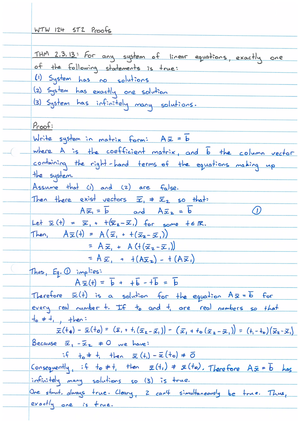 WTW 124 ST2 Proofs
THM 2.3.13: For any system of linear equations, exactly one
of the following statements is true:
(1) System has no solutions
(2) System has exactly one solution
(3) System has infinitely many solutions.
Proof:
Write system in matrix form: Ax̄ = b̄
where A is the coefficient matrix, and b̄ the column vector
containing the right-hand terms of the equations making up
the system.
Assume that (1) and (2) are false.
Then there exist vectors x̄₁ ≠ x̄₂ so that:
Ax̄₁ = b̄ and Ax̄₂ = b̄ ①
Let x̄(t) = x̄₁ + t(x̄₂-x̄₁) for some t∈ℝ.
Then, Ax̄(t) = A(x̄₁ + t(x̄₂-x̄₁))
= Ax̄₁ + A(t(x̄₂-x̄₁))
= Ax̄₁ + t(Ax̄₂) - t(Ax̄₁)
Thus, Eq.① implies:
Ax̄(t) = b̄ + tb̄ - tb̄ = b̄
Therefore x̄(t) is a solution for the equation Ax̄ = b̄ for
every real number t. If t₀ and t₁ are real numbers so that
t₀ ≠ t₁, then:
x̄(t₁) - x̄(t₀) = (x̄₁ + t₁(x̄₂-x̄₁)) - (x̄₁ + t₀(x̄₂-x̄₁)) = (t₁-t₀)(x̄₂-x̄₁)
Because x̄₁ - x̄₂ ≠ 0 we have:
if t₀ ≠ t₁ then x̄(t₁) - x̄(t₀) ≠ 0̄
Consequently, if t₀ ≠ t₁, then x̄(t₁) ≠ x̄(t₀). Therefore Ax̄ = b̄ has
infinitely many solutions so (3) is true.
One stmnt. always true. Clearly, 2 can't simultaneously be true. Thus,
exactly one is true.